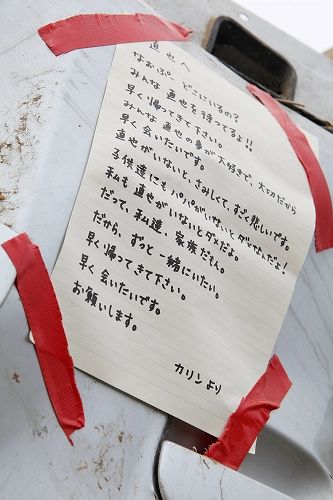 直也へ
なおぷ、どこにいるの？
みんな直也を待ってるよ!!
早く帰ってきて下さい。
みんな直也の事が大好きで、大切だから
早く会いたいです。
直也がいないと、さみしくて、すごく悲しいです。
子供達にもパパがいないとダメなんだよ！
私も直也がいないとダメだよ。
だって、私達、家族だもん。
だから、ずっと一緒にいたい。
早く帰ってきて下さい。
早く会いたいです。
お願いします。
カリンより